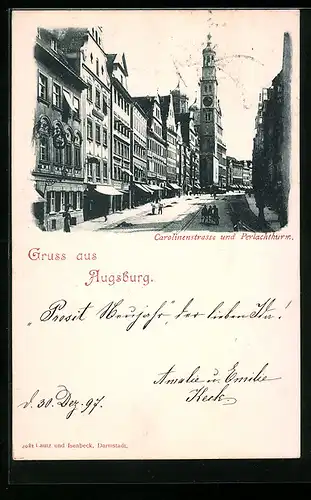 Carolinenstrasse und Perlachthurm.
Gruss aus
Augsburg.
"Prosit Neujahr", der lieben Ida!
Amalie u. Emilie
Keck
d. 30. Dez. 97.
Lautz und Isenbeck, Darmstadt.